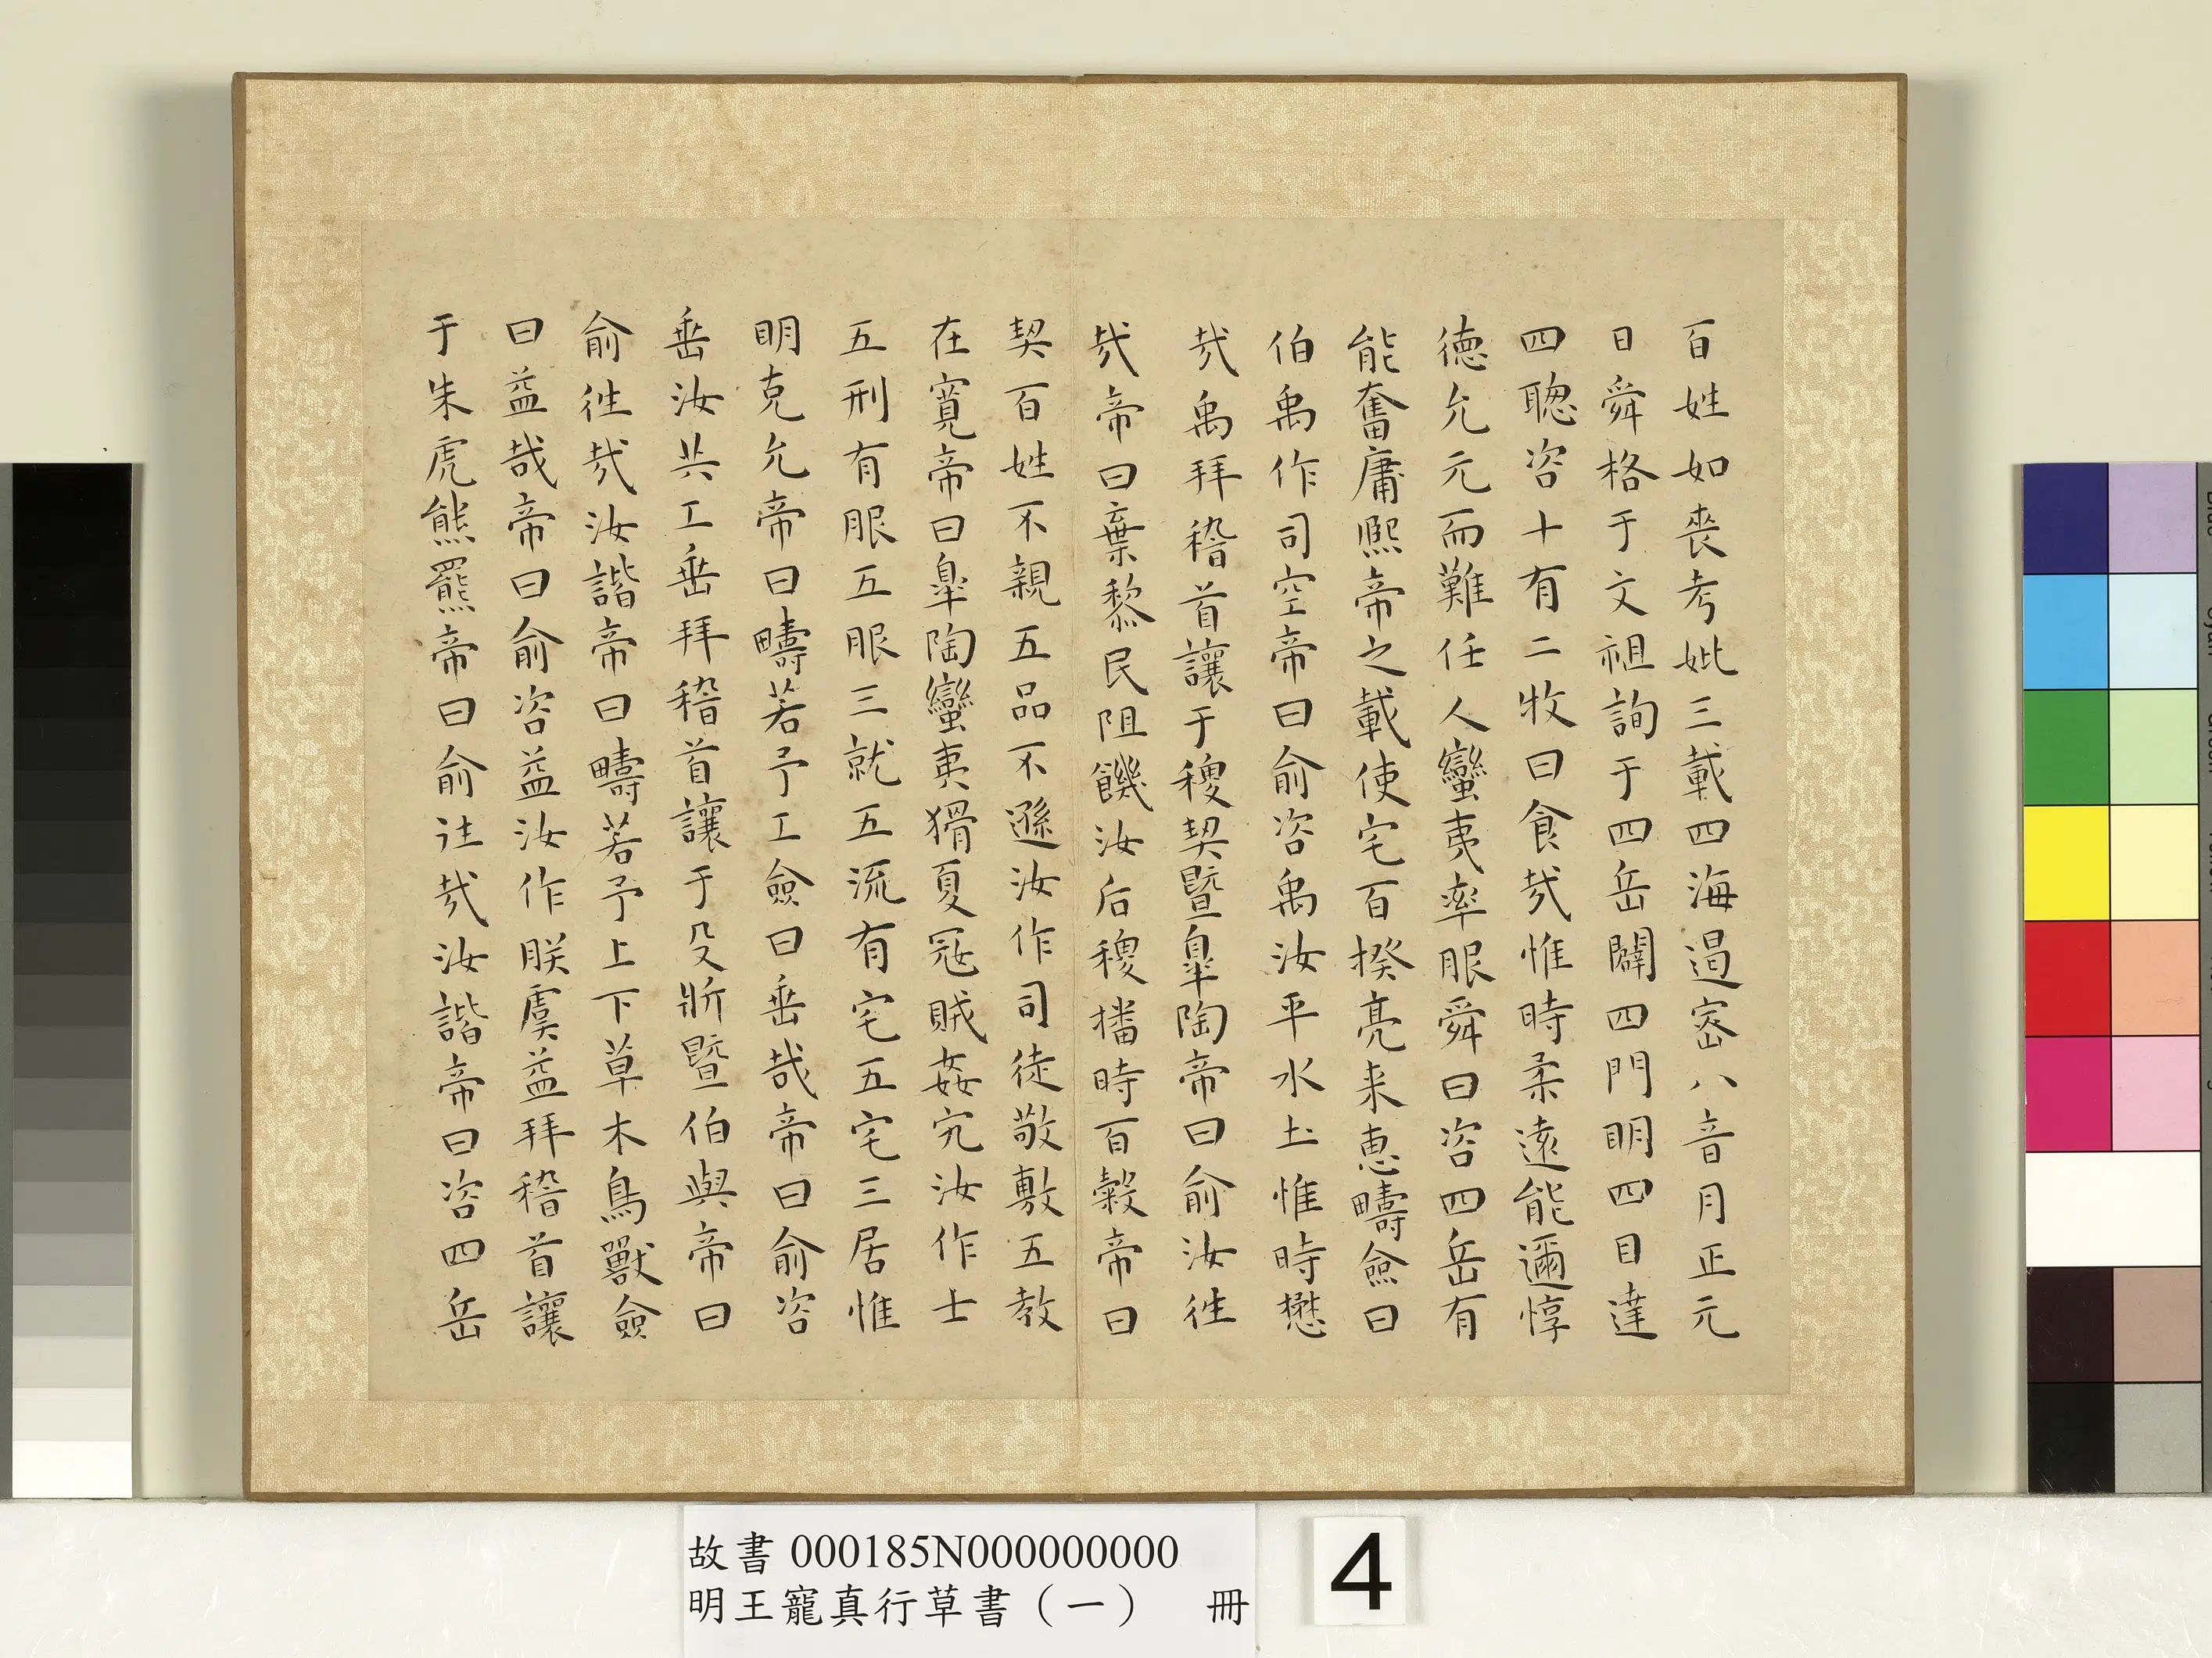 百姓如喪考妣三載四海遏密八音月正元
日舜格于文祖詢于四岳闢四門明四目達
四聰咨十有二牧曰食哉惟時柔遠能邇惇
德允元而難任人蠻夷率服舜曰咨四岳有
能奮庸熙帝之載使宅百揆亮采惠疇僉曰
伯禹作司空帝曰俞咨禹汝平水土惟時懋
哉禹拜稽首讓于稷契暨皐陶帝曰俞汝往
哉帝曰棄黎民阻饑汝后稷播時百穀帝曰
契百姓不親五品不遜汝作司徒敬敷五教
在寬帝曰皐陶蠻夷猾夏寇賊姦宄汝作士
五刑有服五服三就五流有宅五宅三居惟
明克允帝曰疇若予工僉曰垂哉帝曰俞咨
垂汝共工垂拜稽首讓于殳斨暨伯與帝曰
俞往哉汝諧帝曰疇若予上下草木鳥獸僉
曰益哉帝曰俞咨益汝作朕虞益拜稽首讓
于朱虎熊羆帝曰俞往哉汝諧帝曰咨四岳
故書 000185N000000000
明王寵真行草書（一） 冊
4